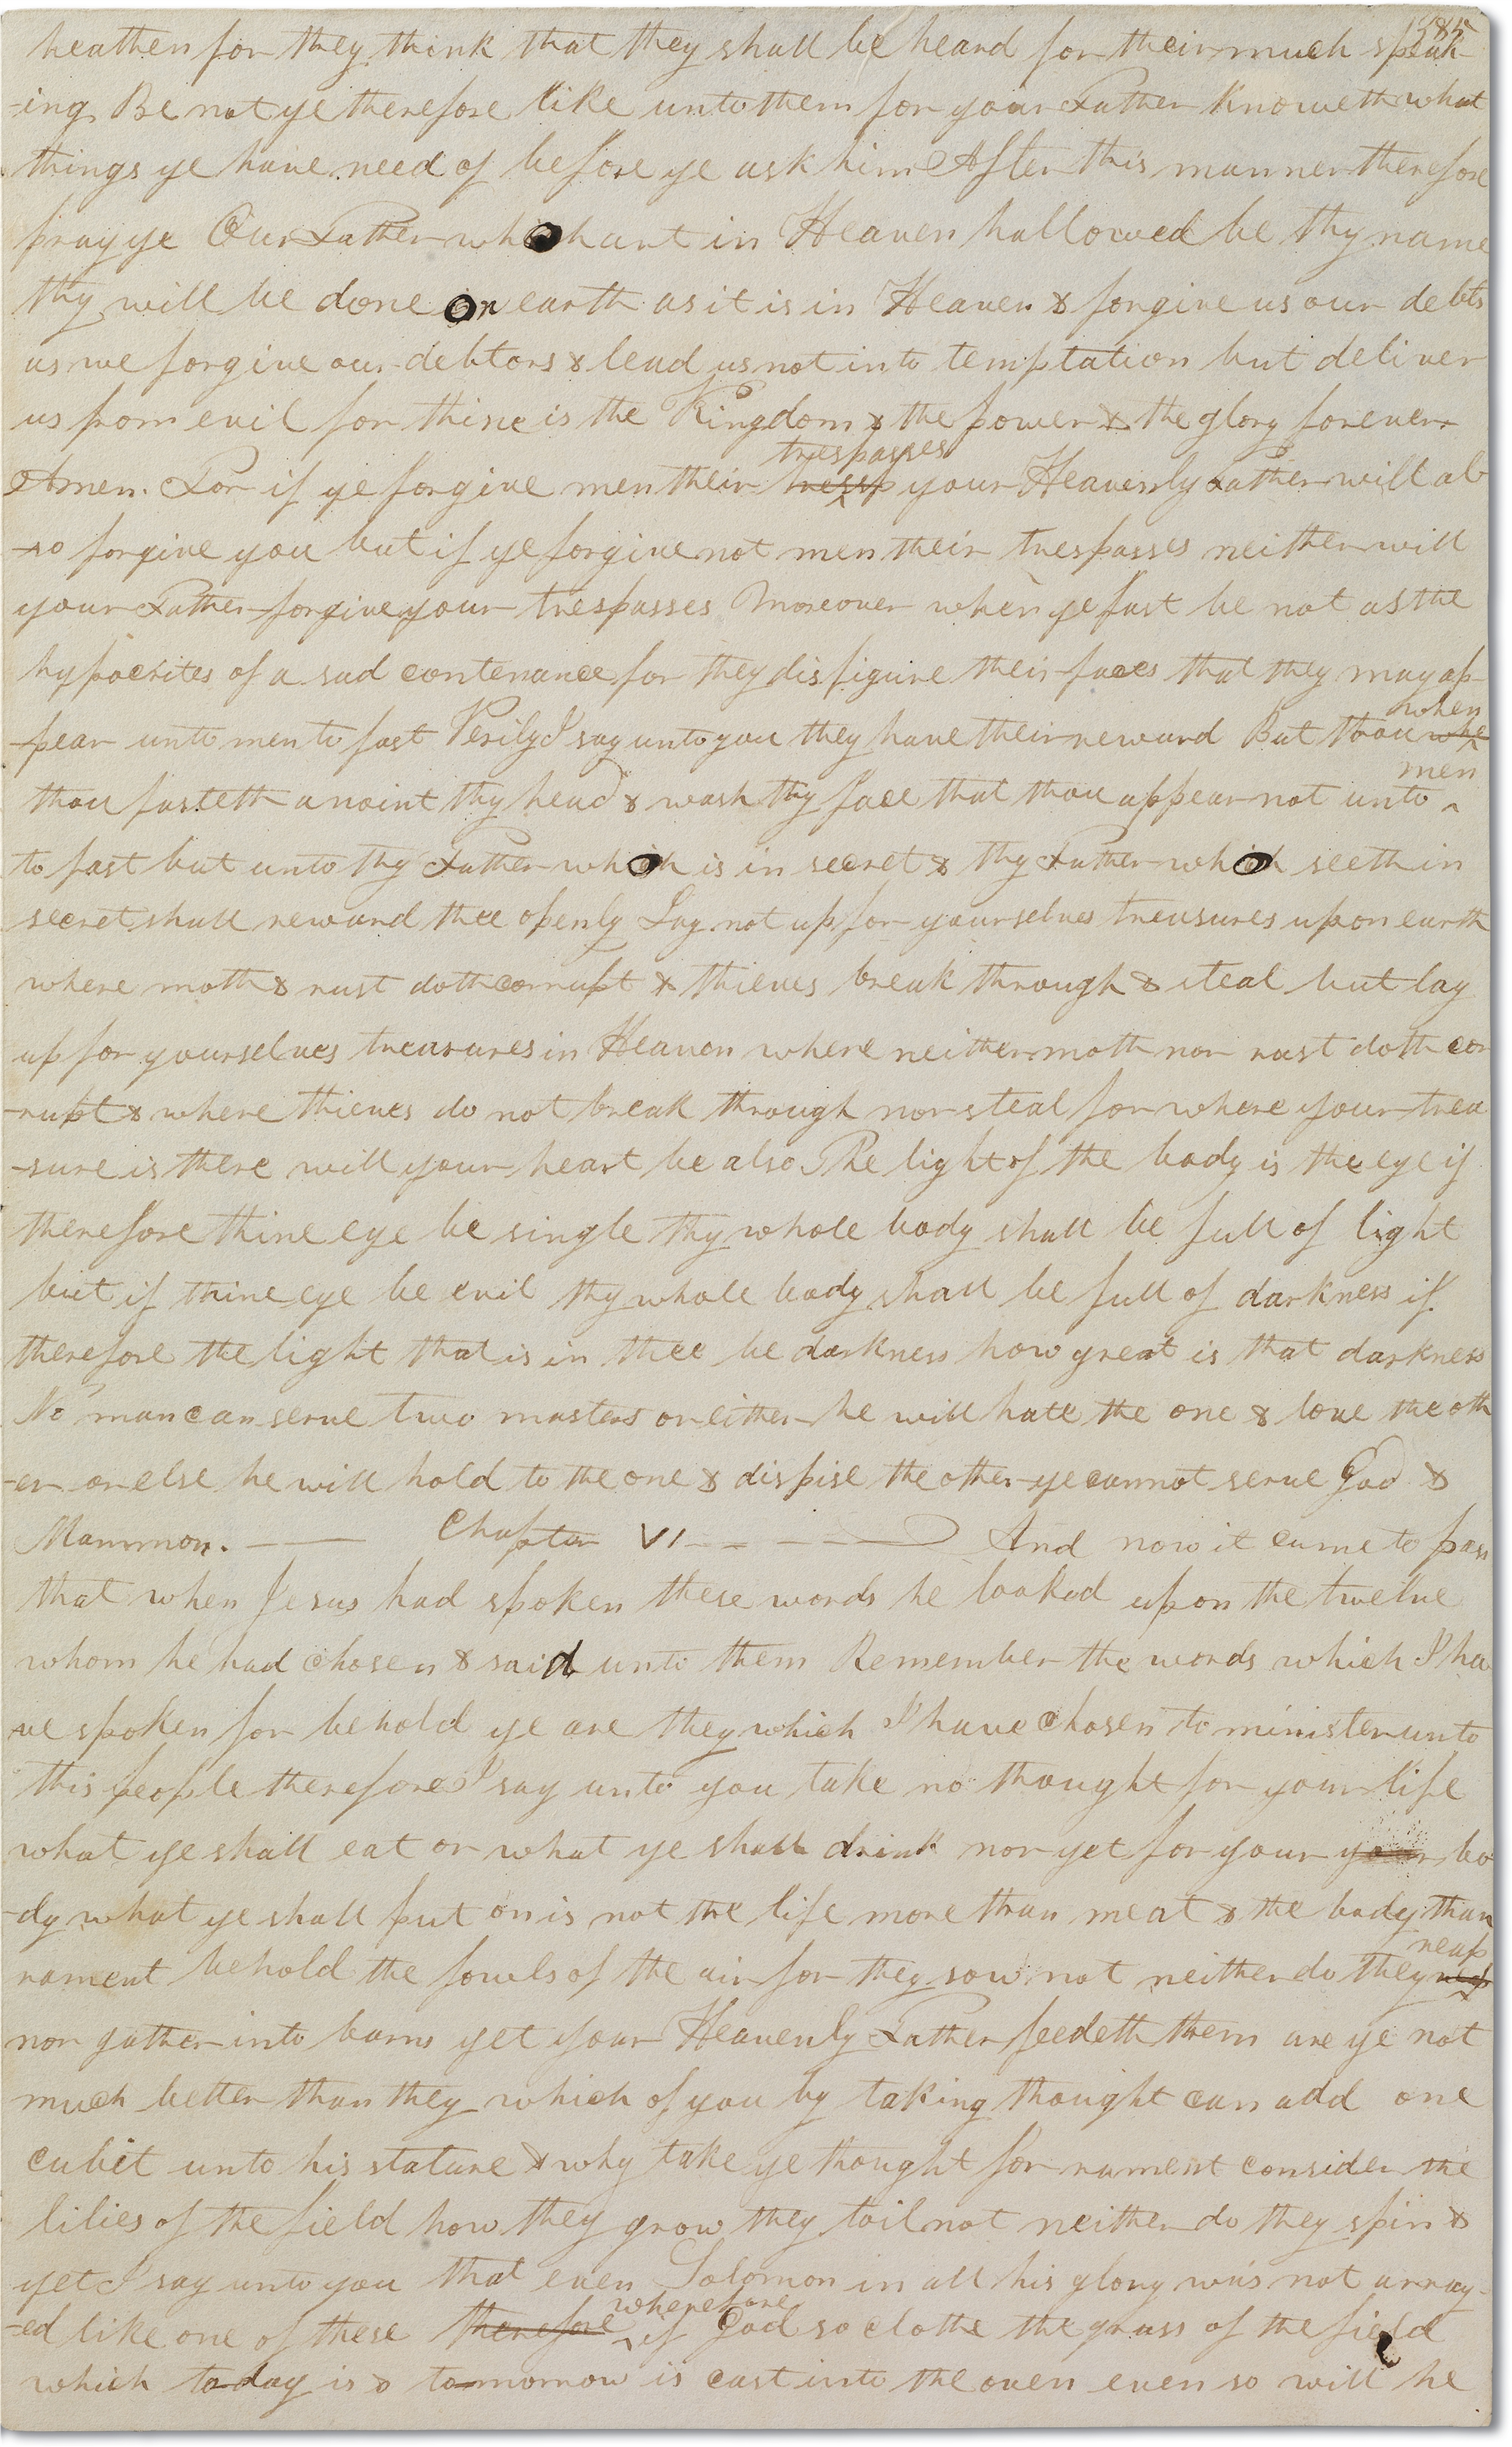 385
heathen for they think that they shall be heard for their much speak-
-ing Be not ye therefore like unto them for your Father knoweth what
things ye have need of before ye ask him After this manner therefore
pray ye Our Father which art in Heaven hallowed be thy name
thy will be done on earth as it is in Heaven & forgive us our debts
as we forgive our debtors & lead us not into temptation but deliver
us from evil for thine is the Kingdom & the power & the glory forever
trespasses
Amen. For if ye forgive men their tressp your Heavenly Father will al
-so forgive you but if ye forgive not men their trespasses neither will
your Father forgive your trespasses Moreover when ye fast be not as the
hypocrites of a sad contenance for they disfigure their faces that they may ap-
when
-pear unto men to fast Verily I say unto you they have their reward But thou whe
men
thou fasteth anoint thy head & wash thy face that thou appear not unto ^
to fast but unto thy Father which is in secret & thy Father which seeth in
secret shall reward thee openly Lay not up for yourselves treasures upon earth
where moth & rust doth corrupt & thieves break through & steal but lay
up for yourselves treasures in Heaven where neither moth nor rust doth cor
-rupt & where thieves do not break through nor steal for where your trea
-sure is there will your heart be also The light of the body is the eye if
therefore thine eye be single thy whole body shall be full of light
but if thine eye be evil thy whole body shall be full of darkness if
therefore the light that is in thee be darkness how great is that darkness
No man can serve two masters or either he will hate the one & love the oth
-er or else he will hold to the one & dispise the other ye cannot serve God &
Mammon. — — Chapter VI — — — — And now it came to pass
that when Jesus had spoken these words he looked upon the twelve
whom he had chosen & said unto them Remember the words which I ha
ve spoken for behold ye are they which I have chosen to minister unto
this people therefore I say unto you take no thought for your life
what ye shall eat or what ye shall drink nor yet for your your bo
-dy what ye shall put on is not the life more than meat & the body than
reap
rament behold the fowls of the air for they sow not neither do they rep
nor gather into barns yet your Heavenly Father feedeth them are ye not
much better than they which of you by taking thought can add one
cubit unto his stature & why take ye thought for rament consider the
lilies of the field how they grow they toil not neither do they spin &
yet I say unto you that even Solomon in all his glory was not array-
wherefore
-ed like one of these therefore ^ if God so clothe the grass of the field
which today is & tomorrow is cast into the oven even so will he